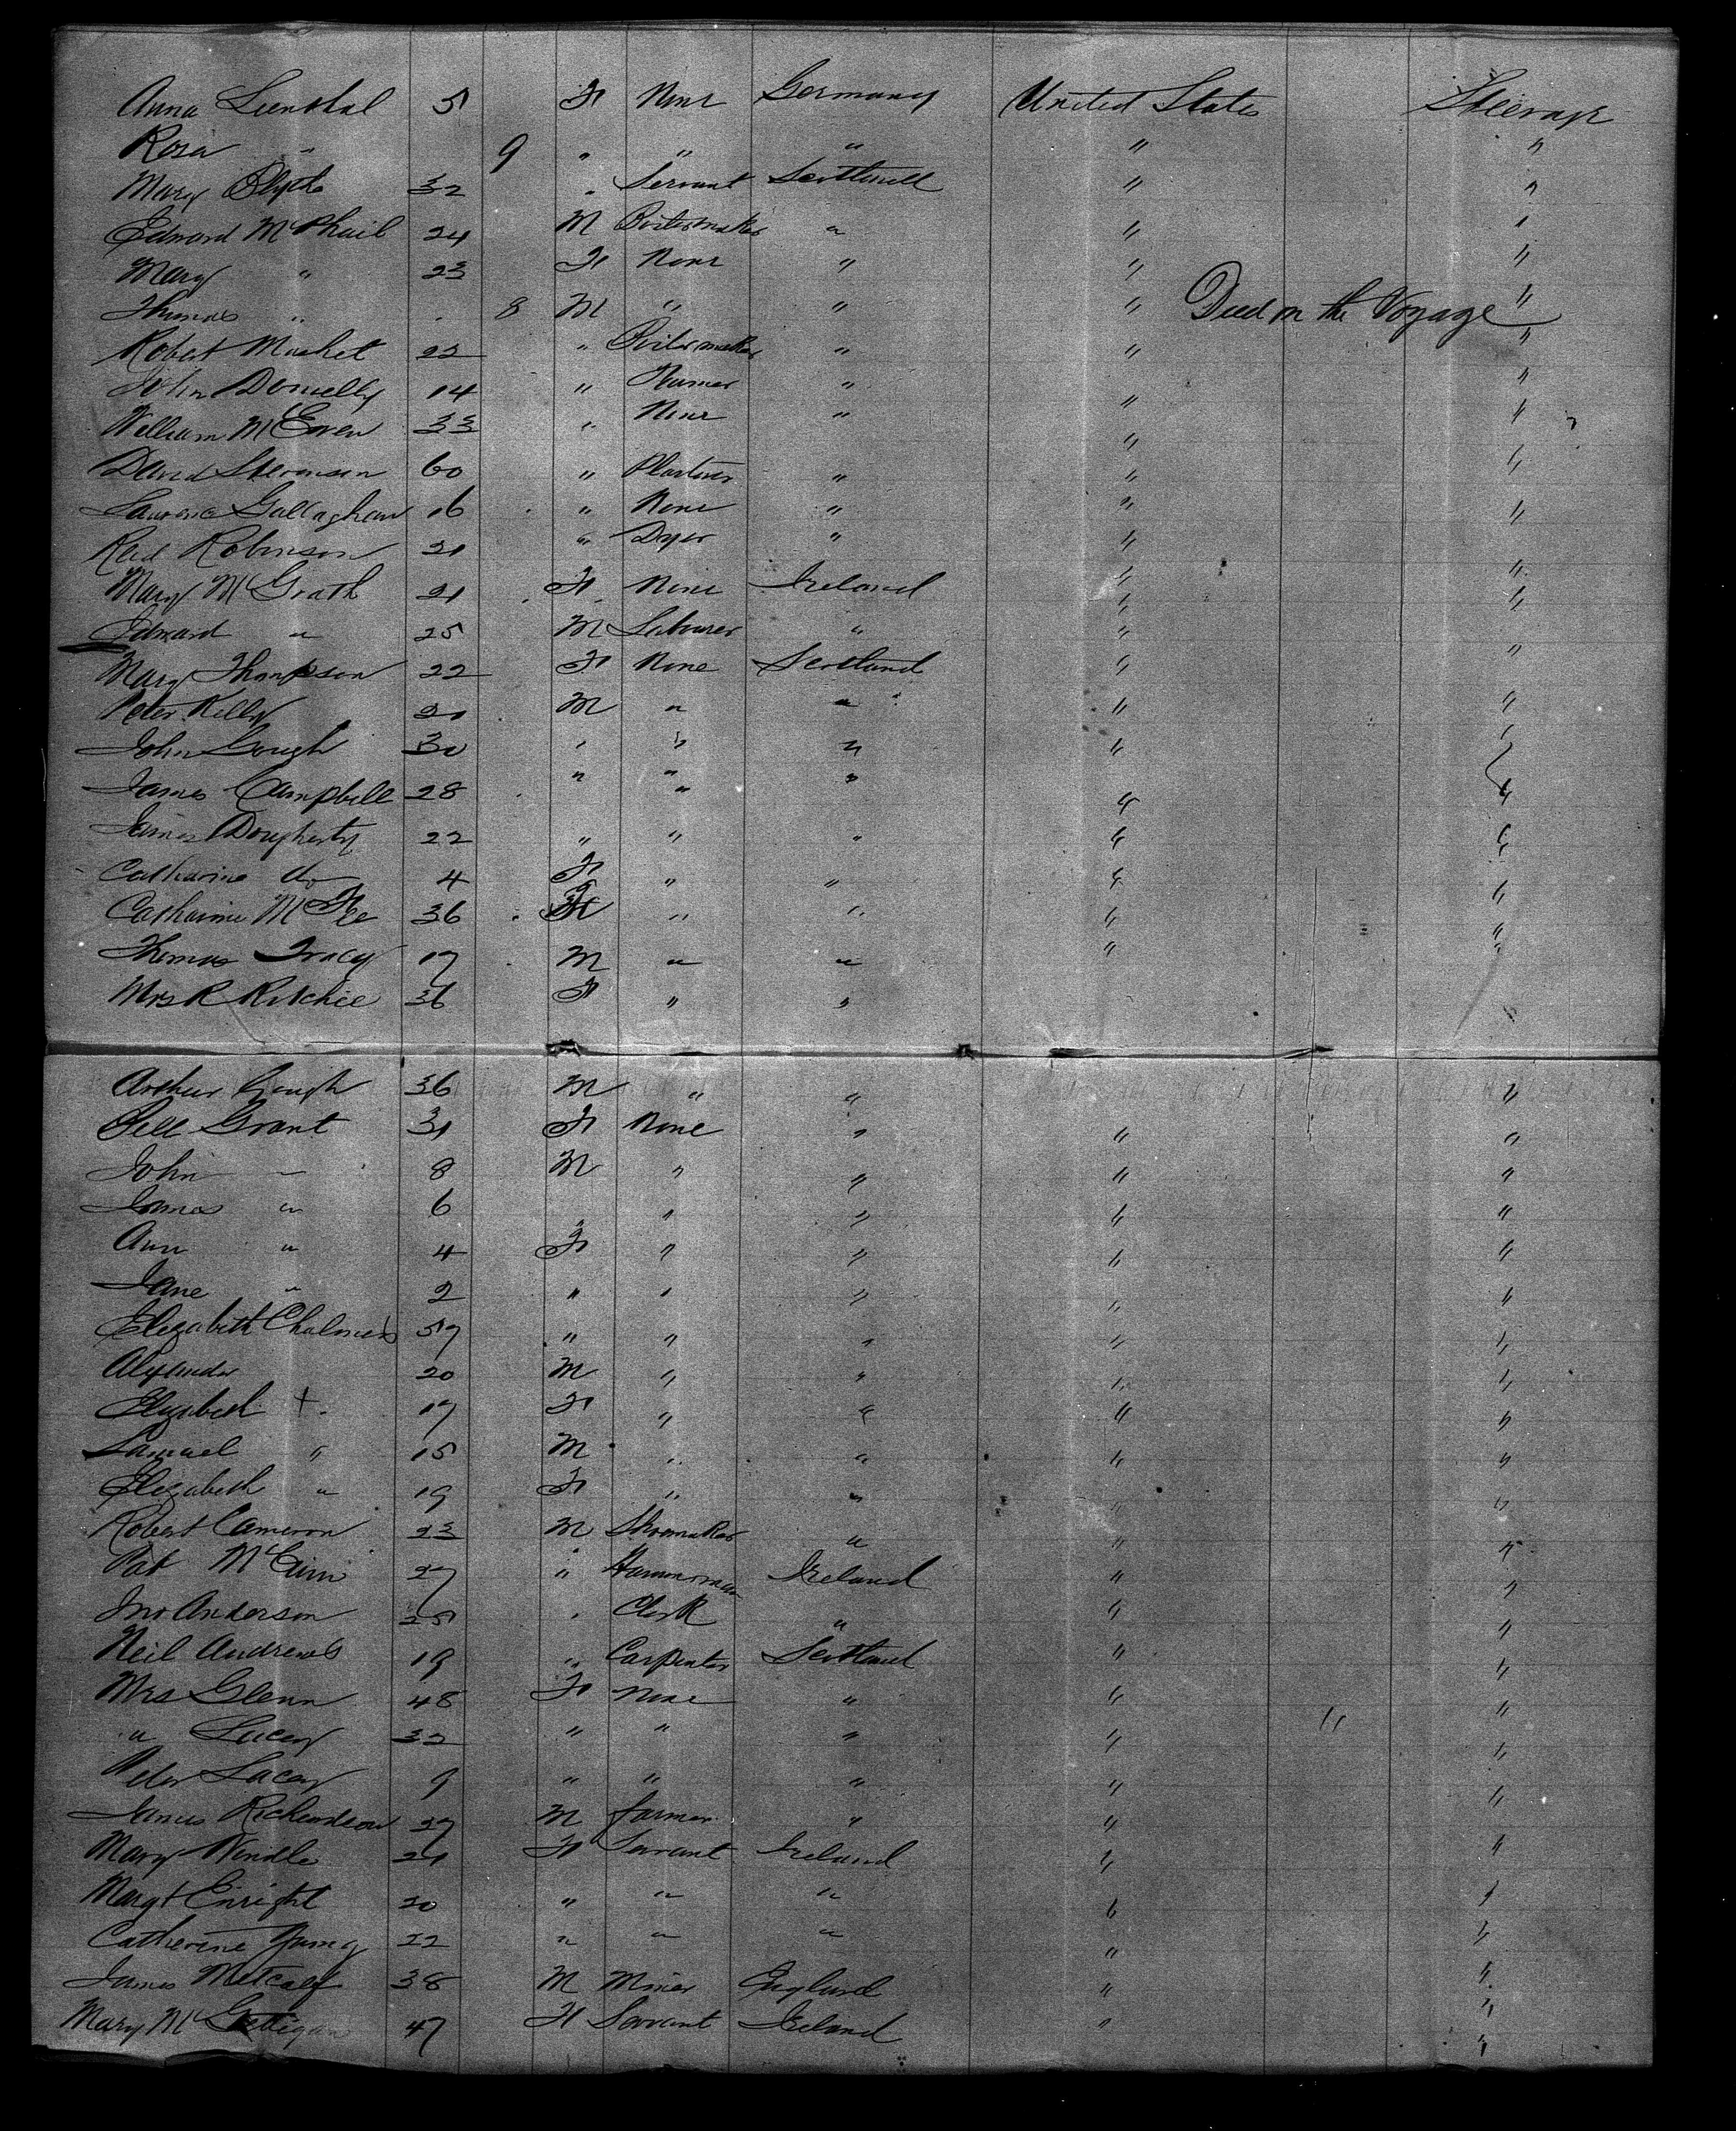 Anna Leenthal 5 F None Germany United States Steerage
Rosa " 9 " " " " "
Mary Blyth 32 " Servant Scotland " "
Edward McPhail 24 M Boilermaker " " "
Mary " 23 F None " " "
Thomas " 8 M " " " Died on the Voyage "
Robert Mushet 22 " Boilermaker " " "
John Donnelly 14 " " " "
William McEwen 33 " None " " "
David Stevenson 60 " Plasterer " " "
Laurence Gallaghan 16 " None " " "
Reid Robinson 21 " Dyer " " "
Mary McGrath 21 F None Ireland " "
Edward " 25 M Labourer " " "
Mary Thompson 22 F None Scotland " "
Peter Kelly 20 M " " " "
John Gough 30 " " " " "
James Campbell 28 " " " " "
James Dougherty 22 " " " " "
Catharine do 4 F " " " "
Catharine McFee 36 F " " " "
Thomas Tracy 17 M " " " "
Mrs R Ritchie 36 F " "
Arthur Gough 36 M " " "
Bell Grant 31 F None " " "
John " 8 M " " " "
James " 6 " " " " "
Ann " 4 F " " " "
Jane " 2 " " " " "
Elizabeth Chalmers 57 " " " " "
Alexander 20 M " " " "
Elizabeth + 17 F " " " "
Samuel " 15 M " " " "
Elizabeth " 19 F " " " "
Robert Cameron 23 M Shoemaker " " "
Pat 27 " Hammerman Ireland " "
Jno Anderson 25 " Clerk " " "
Neil Andrews 19 " Carpenter Scotland " "
Mrs Glenn 48 F None " " "
" Lacey 32 " " " " " "
Peter Lacey 9 " " " " "
James Richardson 27 M farmer " " "
Mary Windle 21 F Servant Ireland " "
Margt Enright 20 " " " " "
Catherine Young 22 " " " " "
James Metcalf 38 M Miner England " "
Mary McGettigan 47 F Servant Ireland " "